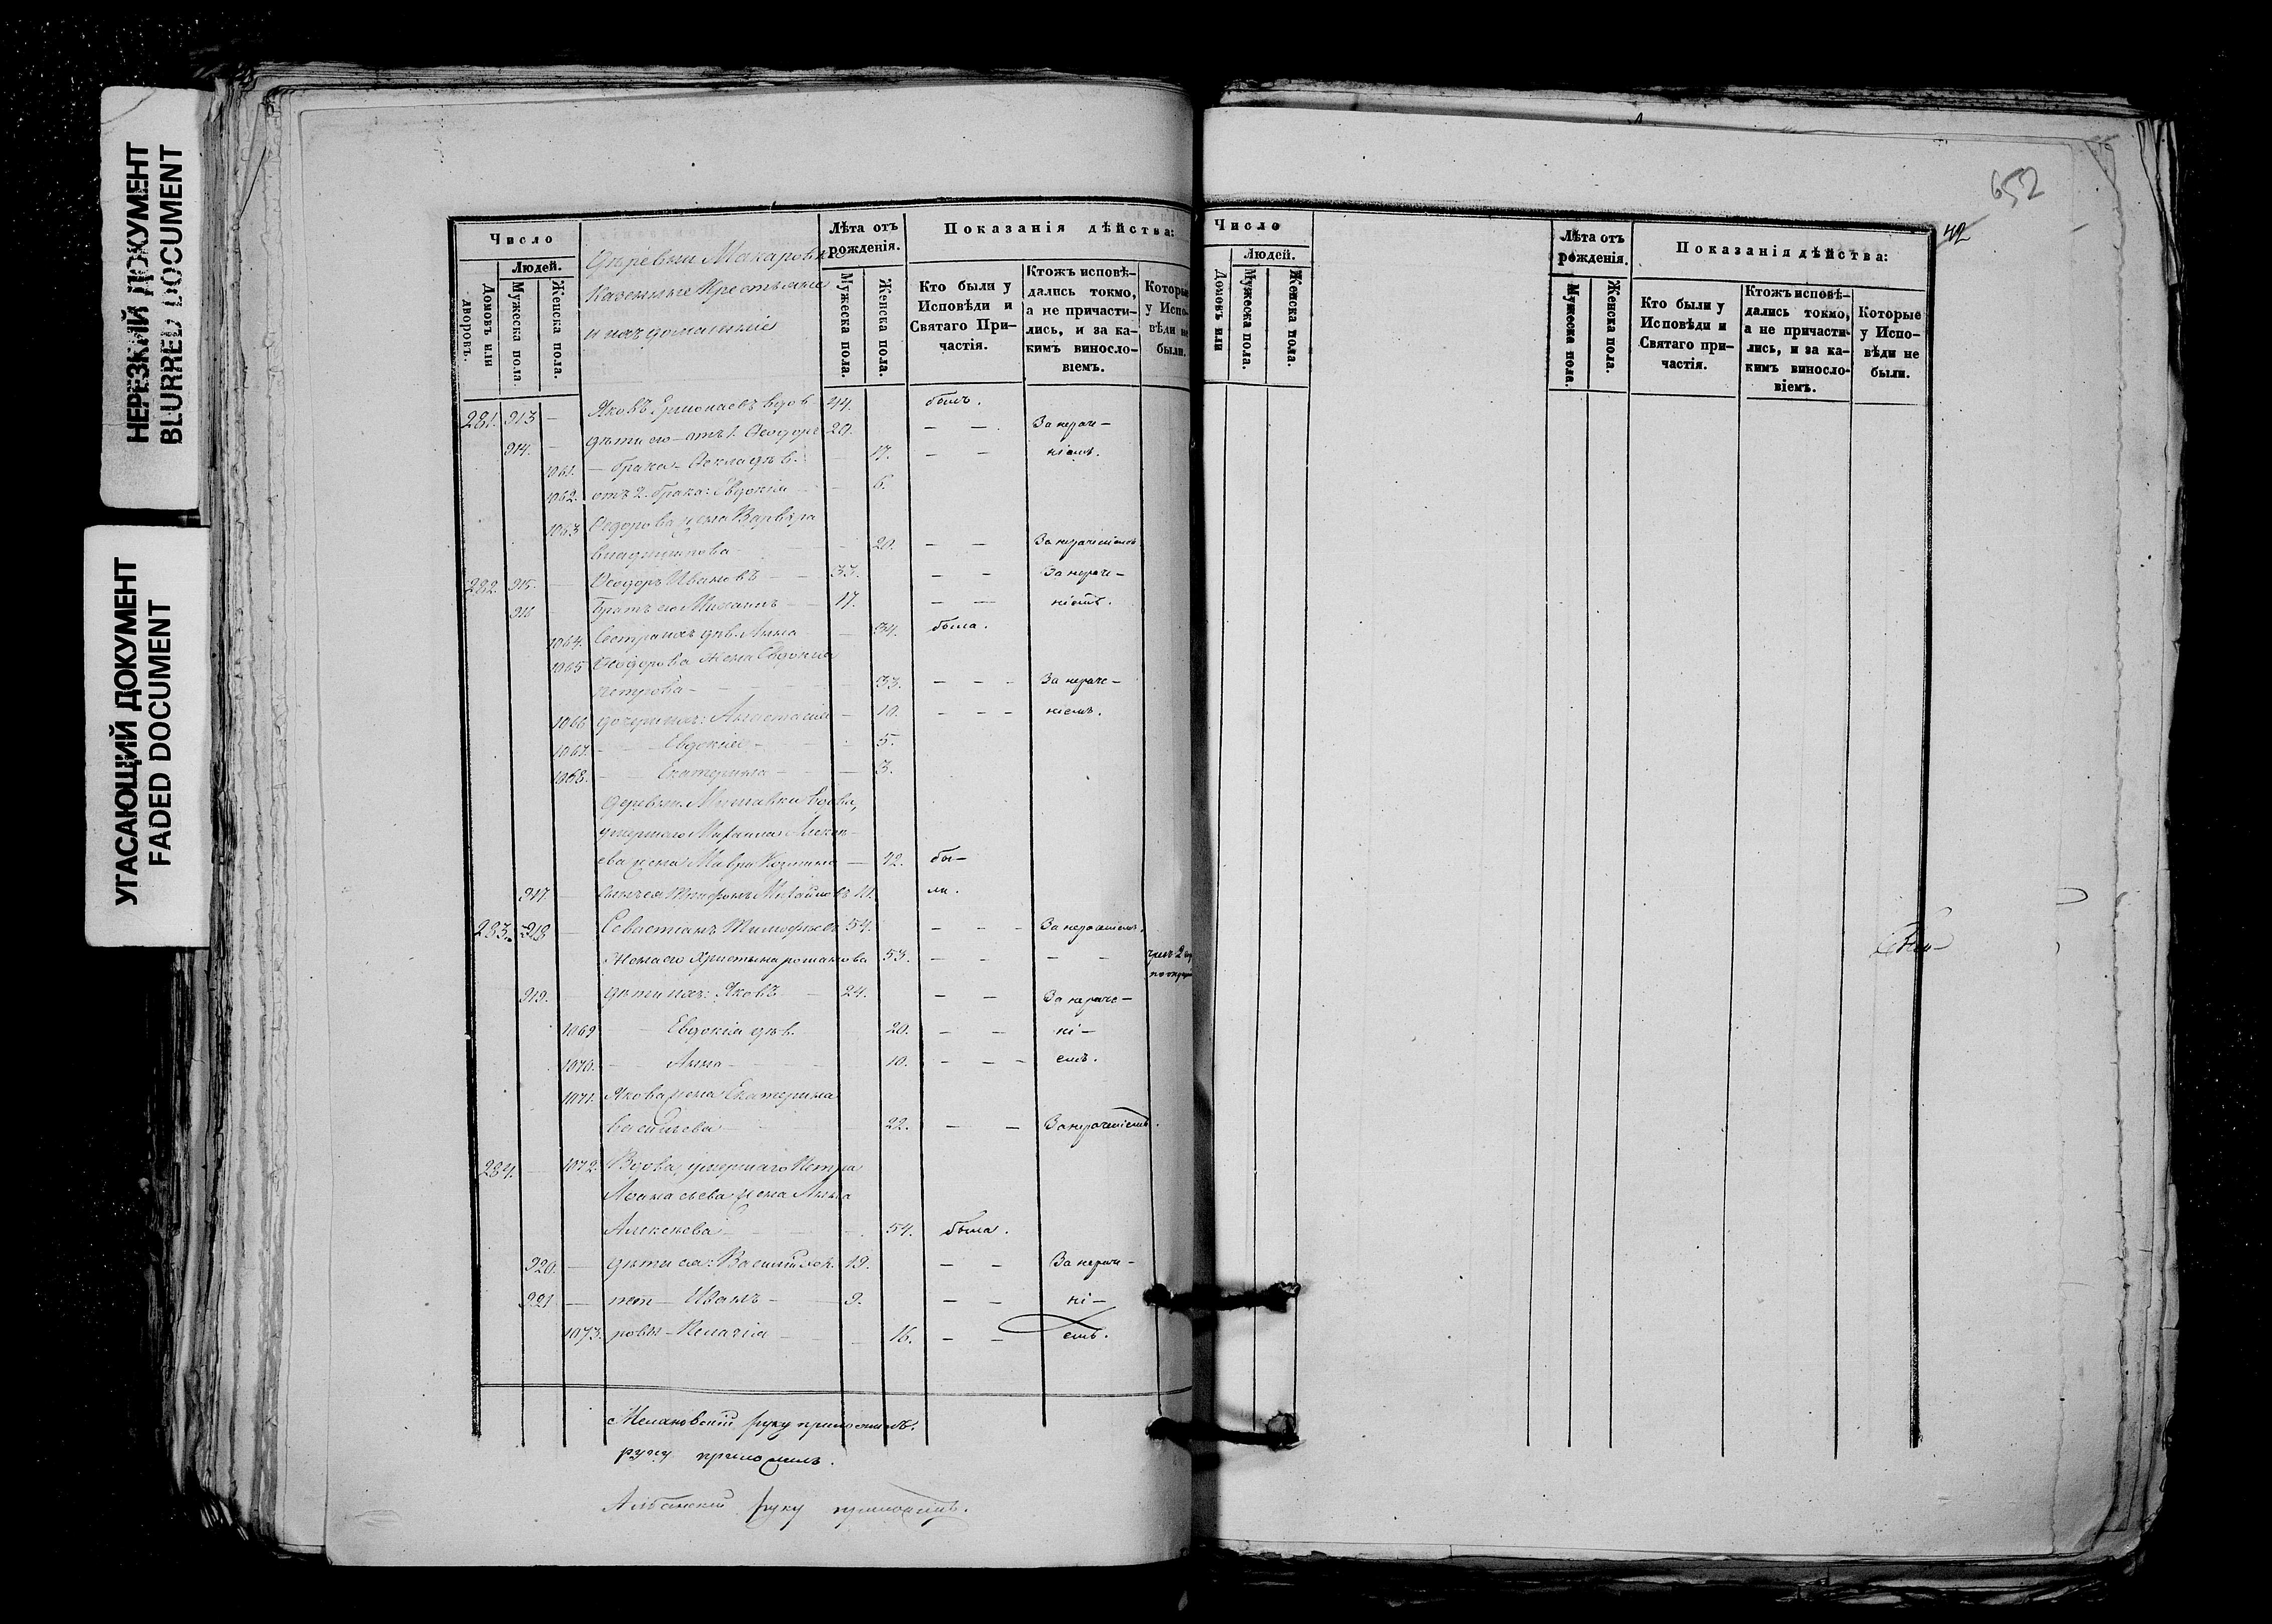 НЕРЕЗКИЙ ДОКУМЕНТ
BLURRED DOCUMENT
УГАСАЮЩИЙ ДОКУМЕНТ
FADED DOCUMENT
Число
Людей.
Домовъ или дворовъ.
Мужеска пола.
Женска пола.
Деревни Макаровки
Казенные Крестьяне
и ихъ домашніе
Лѣта отъ рожденія.
Мужеска пола.
Женска пола.
Показанія дѣйства:
Кто были у Исповѣди и Святаго Причастія.
Ктожъ исповѣдались токмо, а не причастились, и за какимъ винословіемъ.
Которые у Исповѣди не были.
281. 913 — Яковъ вдов 44. былъ.
914. — дѣти его отъ 1. Ѳеодоръ 20. — — За нераче-
1061. — брака — дѣв. 17. — — ніемъ.
1062. отъ 2. брака: Евдокія — 6.
1063 жена Варвара
20. — — За нераченіемъ
282. 915. — Ѳеодоръ Ивановъ — 33. — — За нераче-
916 — Братъ его Михаилъ — 17. — — ніемъ.
1064. Сестра ихъ дѣв. Анна — 34. была.
1065 Ѳеодорова жена Евдокія
Петрова — 33. — — За нераче-
1066 дочери ихъ: Анастасія — 10. — — — ніемъ.
1067. — Евдокія — 5.
1068. — Екатерина — 3.
Деревни вдова,
умершаго Михаила
жена Мавра — 42. бы-
917 — Сынъ ея Михайловъ 11. ли.
283. 918 — Севастіанъ Тимофѣевъ 54. — — За нераченіемъ.
Жена его Христина 53. — — — —
919. — дѣти ихъ: Яковъ — 24. — — За нераче-
1069 — Евдокія дѣв. 20. — — ні-
1070. — Анна — 10. — — — емъ.
1071. Якова жена Екатерина
Васильева — 22. — — За нераченіемъ.
284. — 1072. Вдова, умершаго Петра
жена Анна
Алексѣева — 54. была.
920. — дѣти ея: Василій 19. — — За нераче-
921 — пет — Иванъ — 9. — — ні-
1073. ровы — Пелагія — 16. — — емъ.
руку приложилъ.
руку приложилъ.
руку приложилъ.
652
42
Число
Людей.
Домовъ или
Мужеска пола.
Женска пола.
Лѣта отъ рожденія.
Мужеска пола.
Женска пола.
Показанія дѣйства:
Кто были у Исповѣди и Святаго причастія.
Ктожъ исповѣдались токмо, а не причастились, и за какимъ винословіемъ.
Которые у Исповѣди не были.